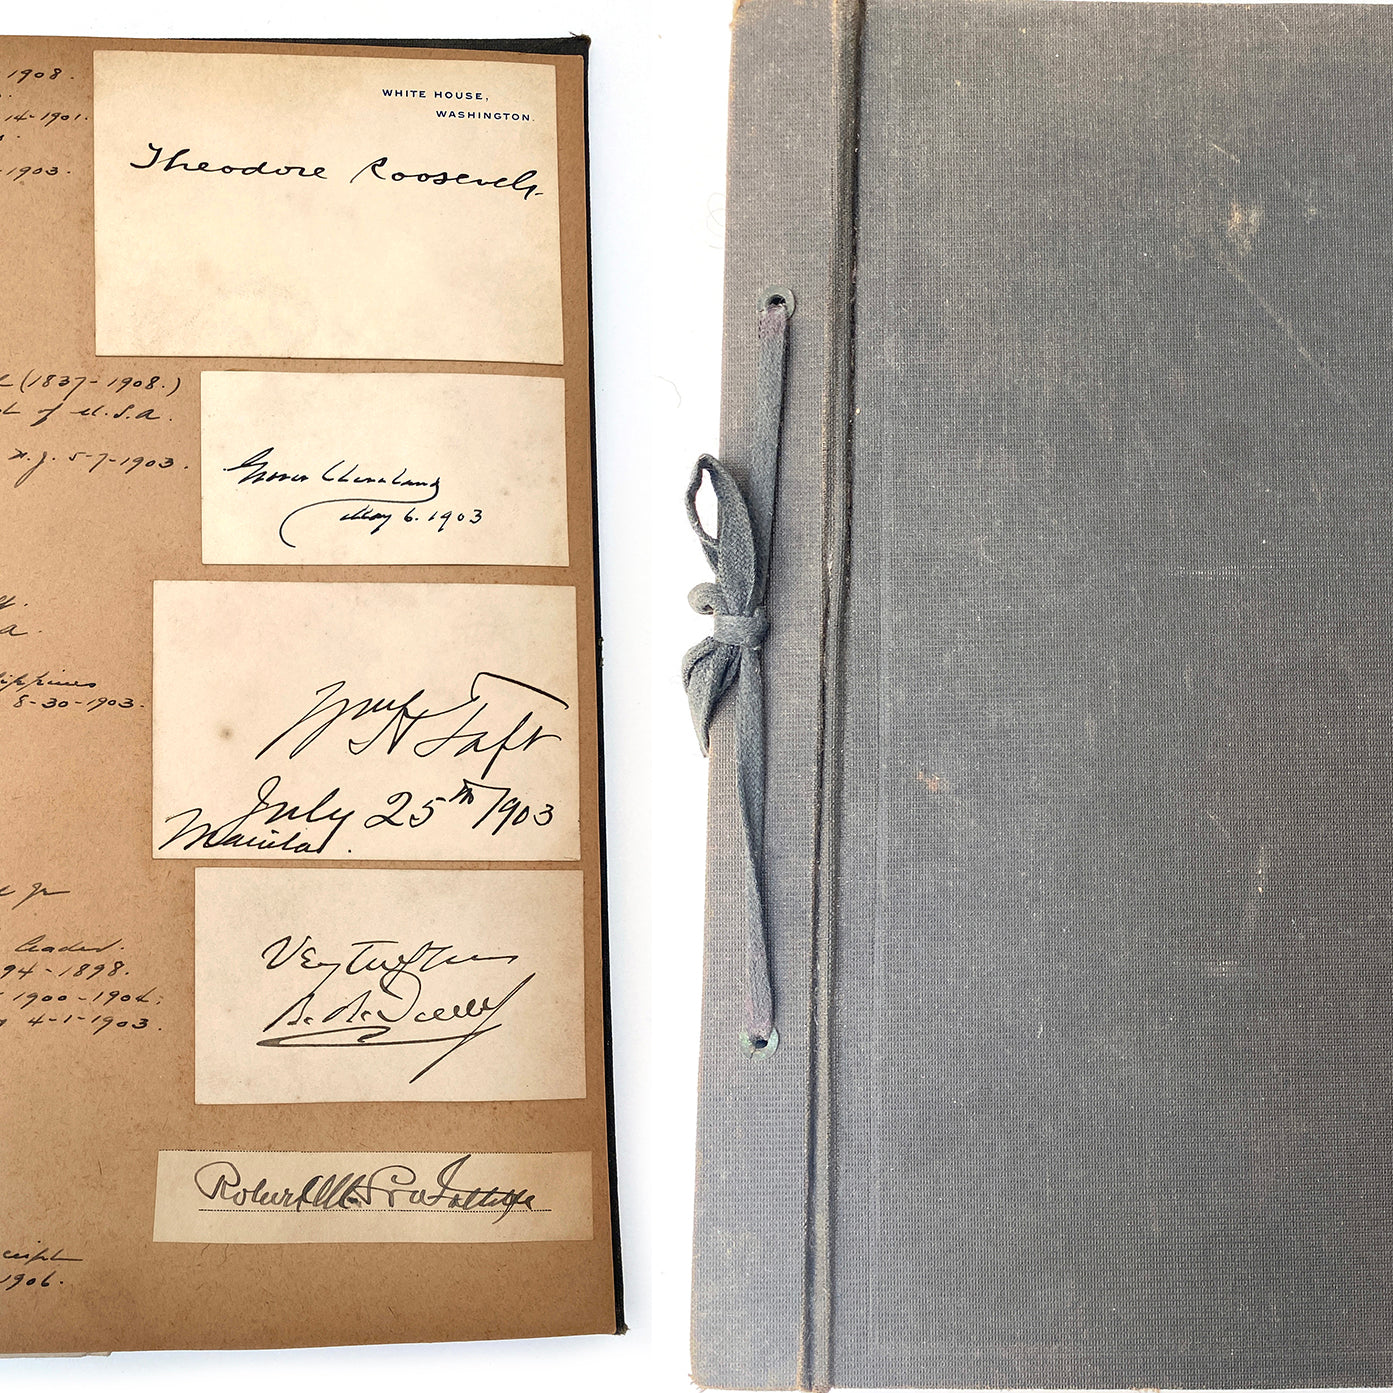 1908.
14-1901.
-1903.
WHITE HOUSE,
WASHINGTON.
Theodore Roosevelt
(1837-1908.)
of U.S.A.
N.J. 5-7-1903.
Grover Cleveland
May 6. 1903
a.
8-30-1903.
Wm H Taft
July 25th 1903
Manila.
Jr
leader.
94-1898.
1900-1904.
4-1-1903.
Very truly
Robert M. La Follette
1906.